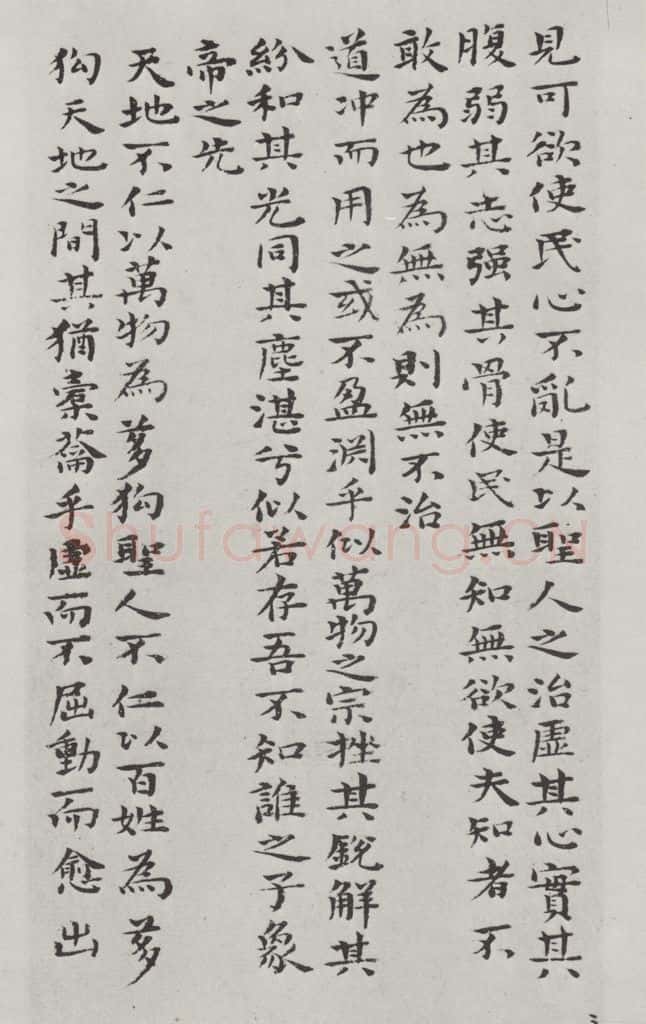 見可欲使民心不亂是以聖人之治虛其心實其
腹弱其志强其骨使民無知無欲使夫知者不
敢為也為無為則無不治
道冲而用之或不盈渊乎似萬物之宗挫其銳解其
紛和其光同其塵湛兮似若存吾不知誰之子象
帝之先
天地不仁以萬物為芻狗聖人不仁以百姓為芻
狗天地之間其猶橐籥乎虛而不屈動而愈出
Shufawang.CN